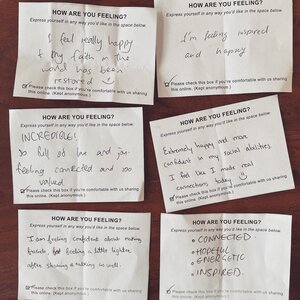 HOW ARE YOU FEELING?
Express yourself in any way you'd like in the space below.
I feel really happy
& my faith in the
world has been
restored
Please check this box if you're comfortable with us sharing
this online. (Kept anonymous.)
HOW ARE YOU FEELING?
Express yourself in any way you'd like in the space below.
I'm feeling inspired
and happy
Please check this box if you're comfortable with us sharing
this online. (Kept anonymous.)
HOW ARE YOU FEELING?
Express yourself in any way you'd like in the space below.
INCREDIBLE!
So full of love and joy.
feeling connected and so
valued
Please check this box if you're comfortable with us sharing
this online. (Kept anonymous.)
HOW ARE YOU FEELING?
Express yourself in any way you'd like in the space below.
Extremely happy and more
confident in my social abilities
I feel like I made real
connections today
Please check this box if you're comfortable with us sharing
this online. (Kept anonymous.)
HOW ARE YOU FEELING?
Express yourself in any way you'd like in the space below.
I am feeling confident about making
friends, but feeling a little lighter
after sharing & talking as well.
Please check this box if you're comfortable with us sharing
this online. (Kept anonymous.)
HOW ARE YOU FEELING?
Express yourself in any way you'd like in the space below.
CONNECTED
HOPEFUL
ENERGETIC
INSPIRED.
Please check this box if you're comfortable with us sharing
this online. (Kept anonymous.)